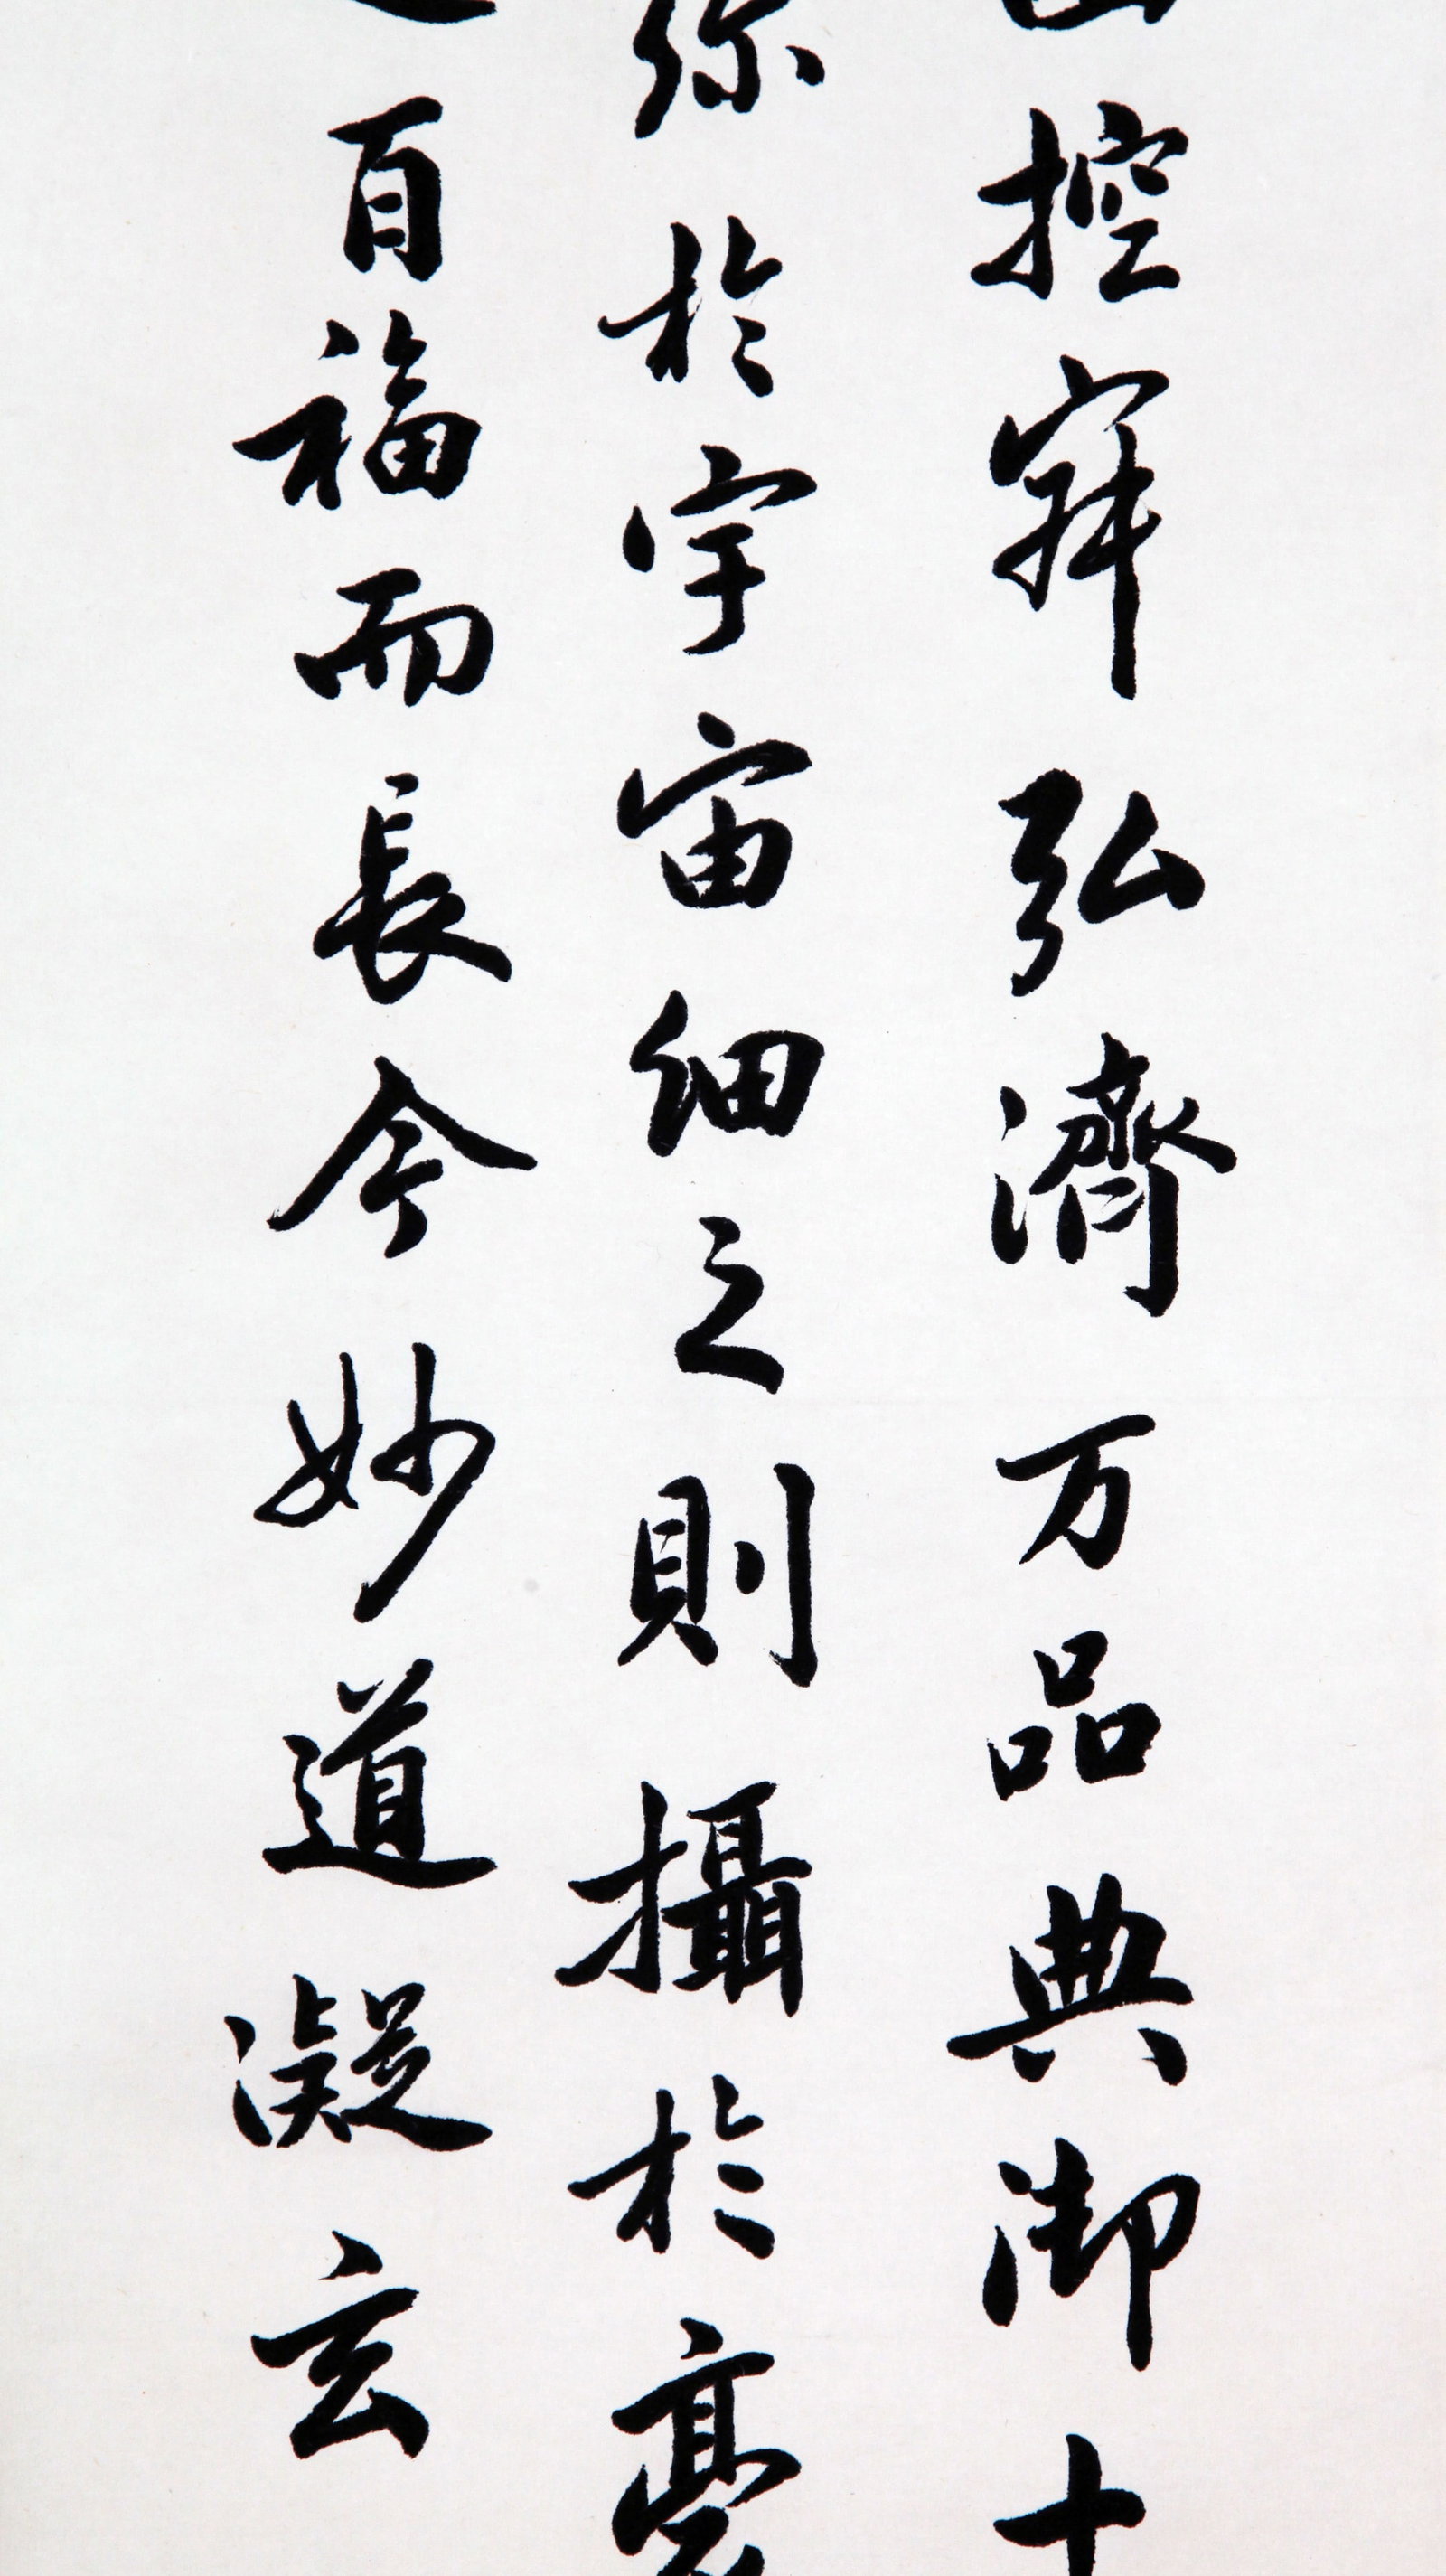 控寂弘濟万品典御十
弥於宇宙細之則攝於豪
百福而長今妙道凝玄